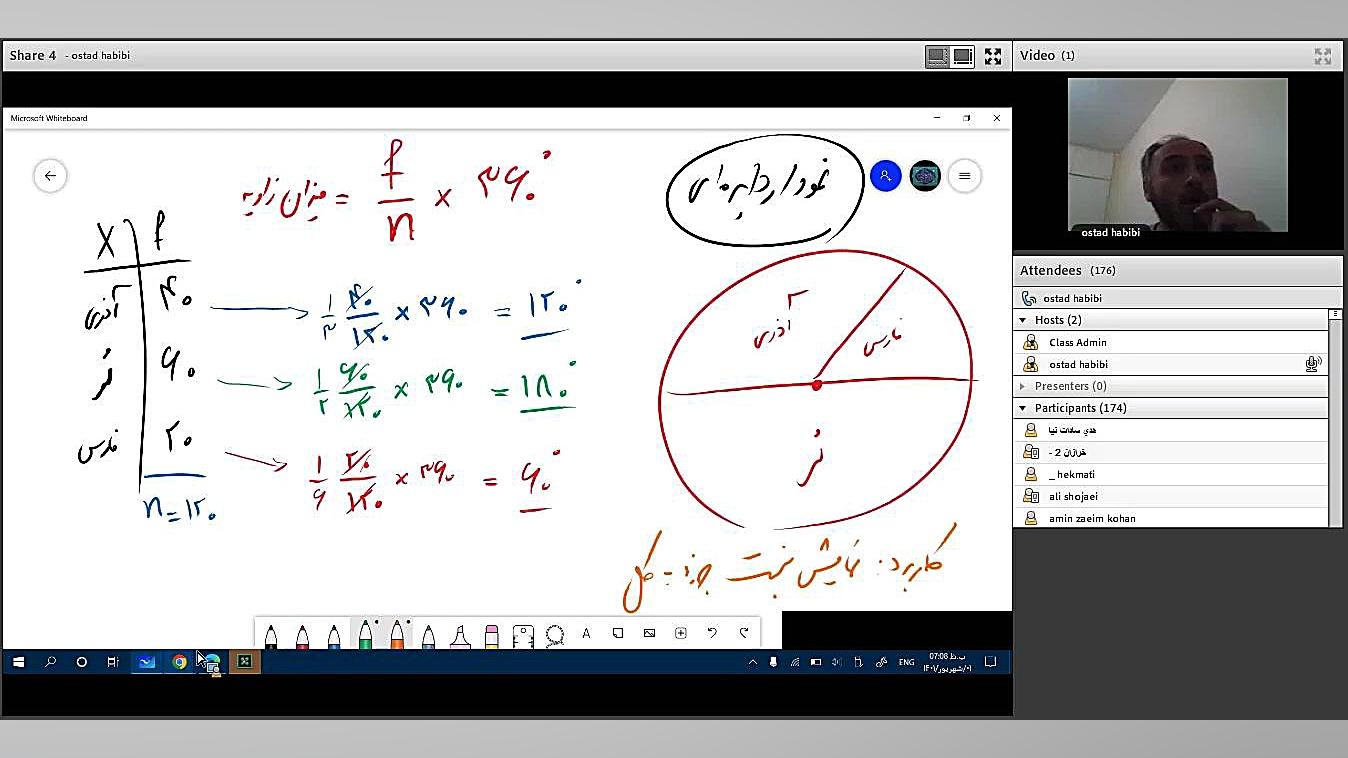 Share 4 - ostad habibi
Video (1)
Microsoft Whiteboard
میزان زاویه = f/n × ۳۶۰°
نمودار دایره‌ای
X f
آذری ۴۰
۱/۳ ۴۰/۱۲۰ × ۳۶۰ = ۱۲۰°
لُر ۶۰
۱/۲ ۶۰/۱۲۰ × ۳۶۰ = ۱۸۰°
فارس ۲۰
۱/۶ ۲۰/۱۲۰ × ۳۶۰ = ۶۰°
n = ۱۲۰
آذری
فارس
لُر
کاربرد: نمایش نسبت جزء به کل
ostad habibi
Attendees (176)
ostad habibi
Hosts (2)
Class Admin
ostad habibi
Presenters (0)
Participants (174)
هدي سادات نيا
خزازان 2 -
_ hekmati
ali shojaei
amin zaeim kohan
ENG
07:08 ب.ظ